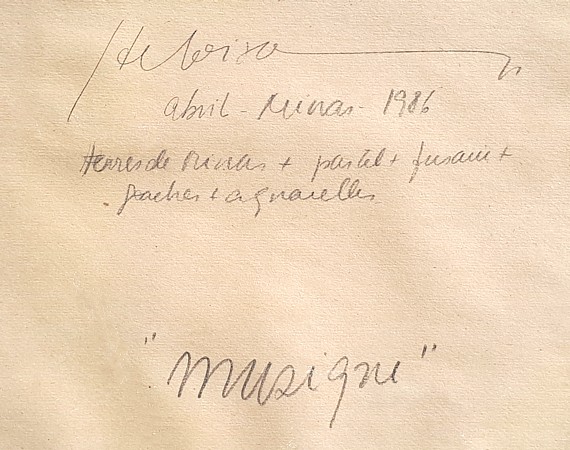 Heloisa
abril - Minas - 1986
terres de Minas + pastel + fusain +
gouaches + aquarelles
"musique"